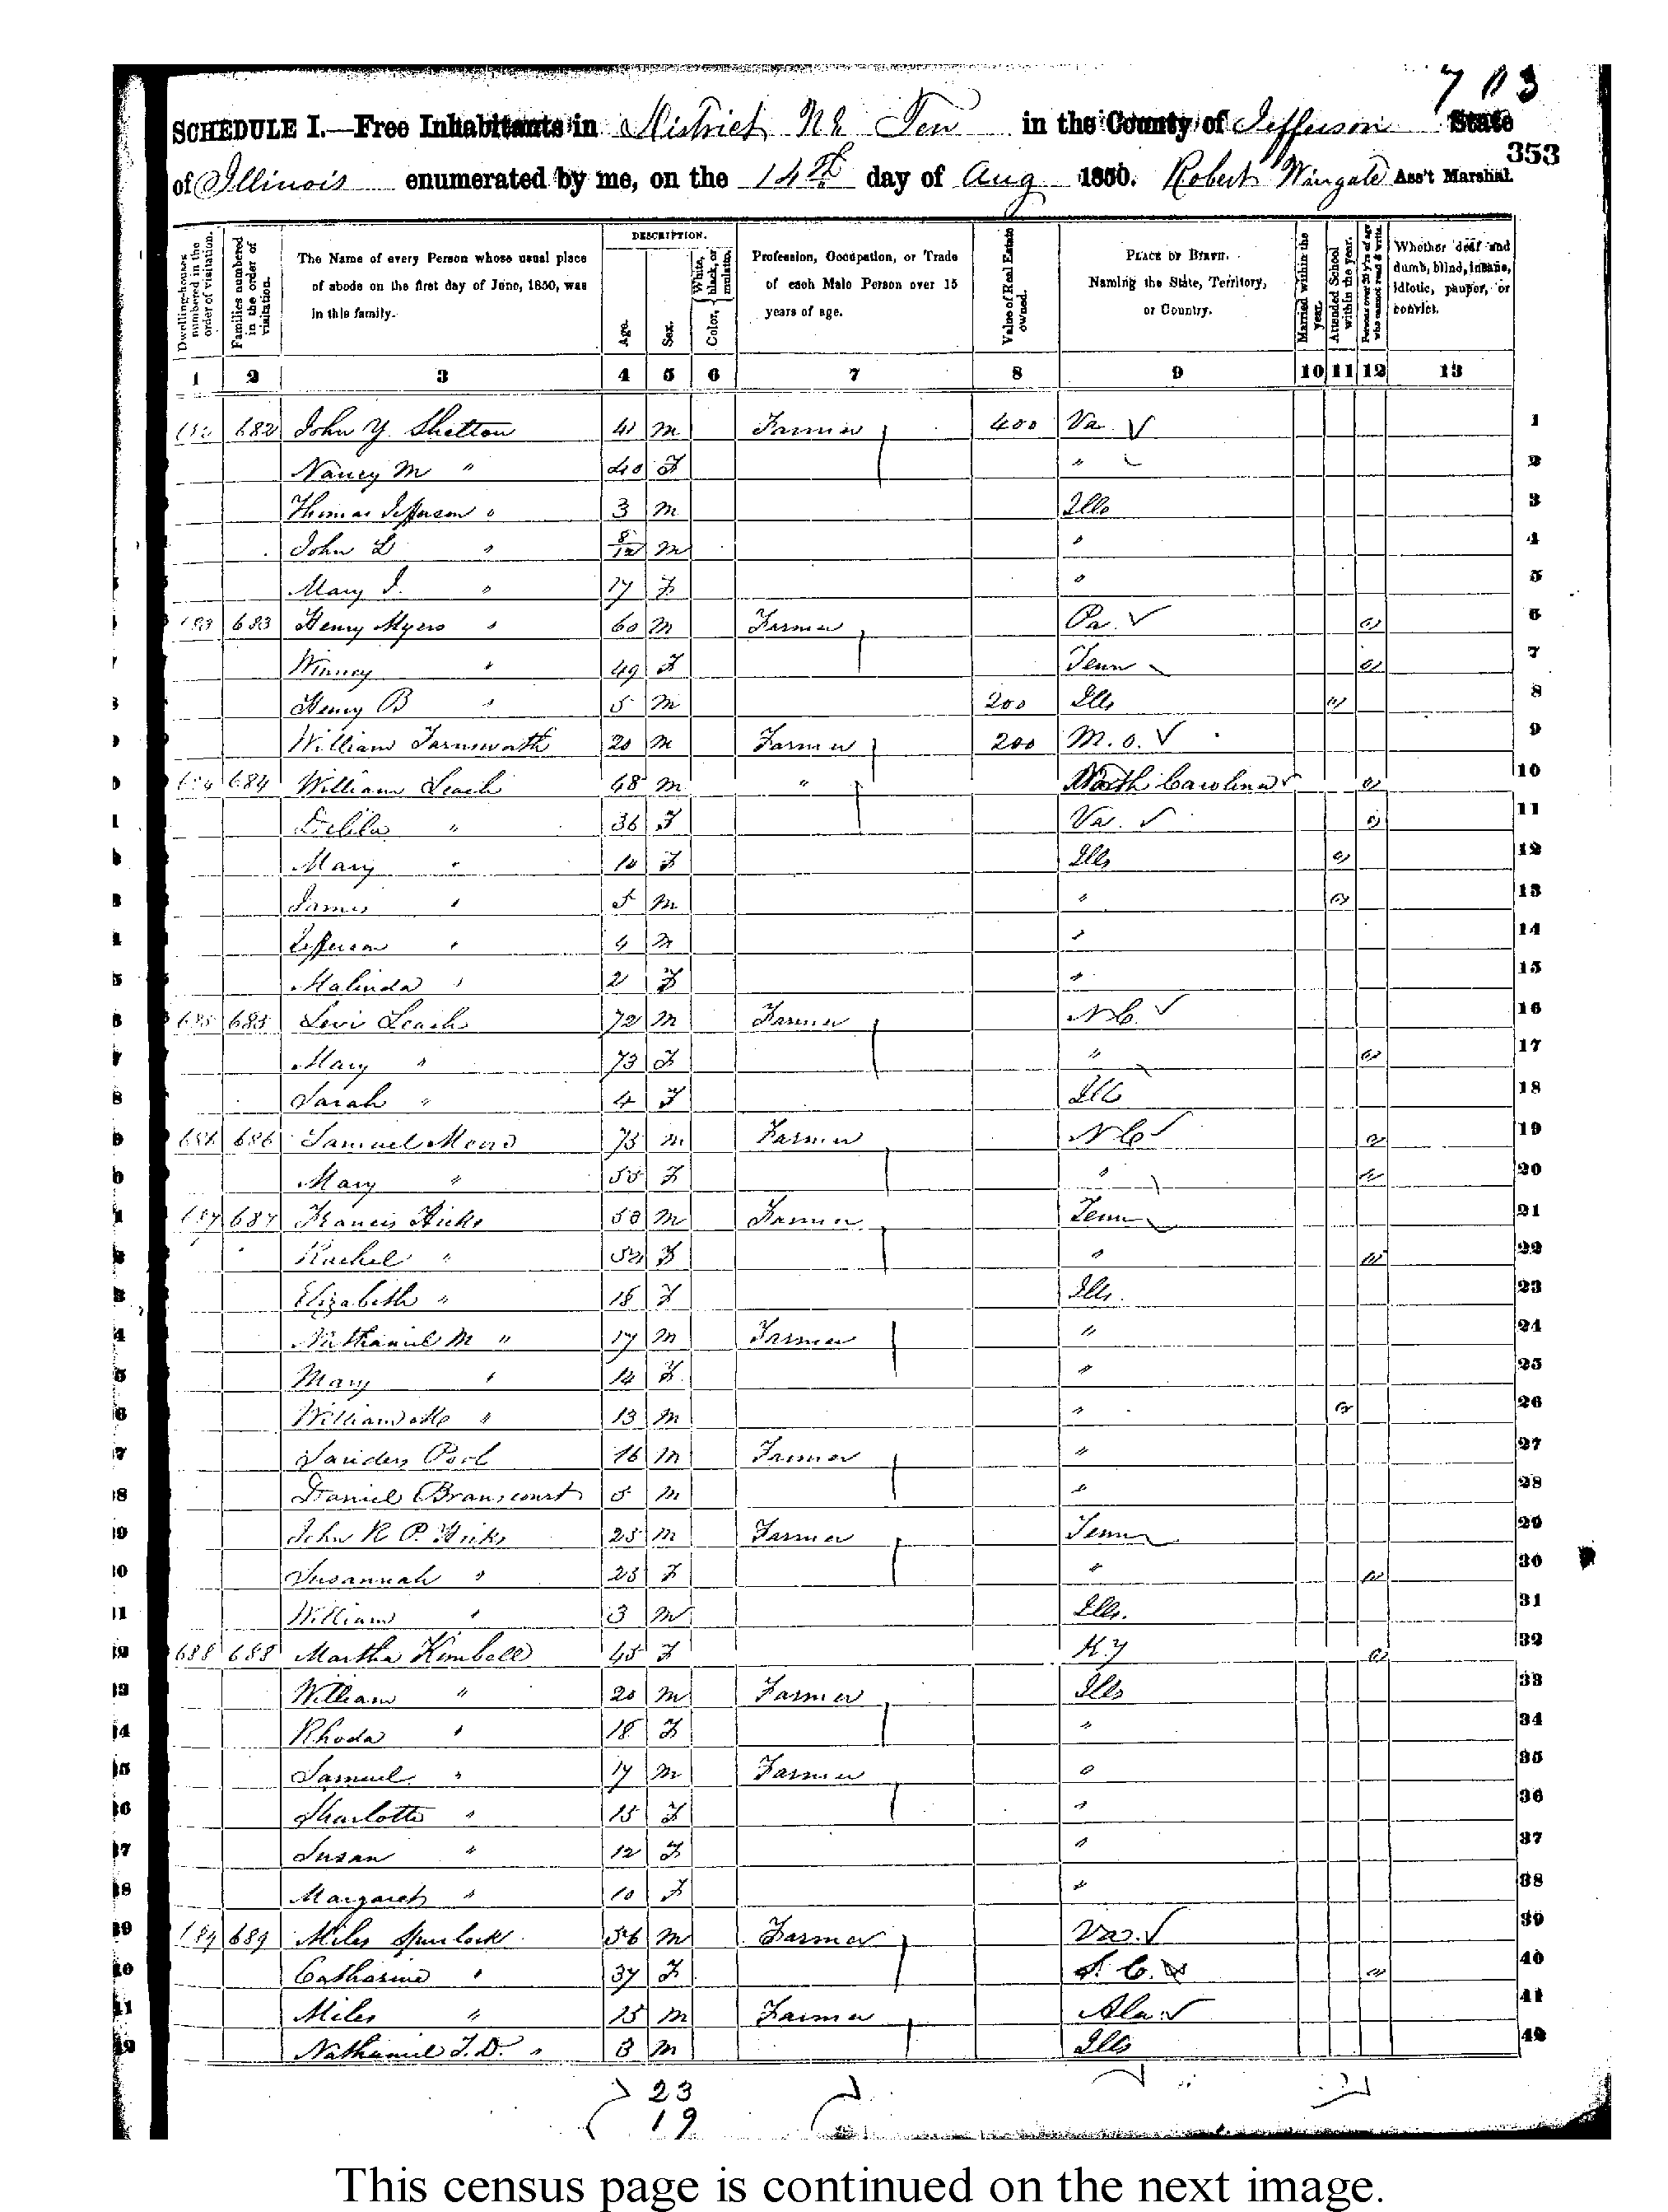 703
SCHEDULE I.—Free Inhabitants in District No Ten in the County of Jefferson State
353
of Illinois enumerated by me, on the 14th day of Aug 1850. Robert Wingate Ass't Marshal.
Dwelling-houses numbered in the order of visitation.
Families numbered in the order of visitation.
The Name of every Person whose usual place of abode on the first day of June, 1850, was in this family.
DESCRIPTION.
Age.
Sex.
Color, White, black, or mulatto.
Profession, Occupation, or Trade of each Male Person over 15 years of age.
Value of Real Estate owned.
PLACE OF BIRTH. Naming the State, Territory, or Country.
Married within the year.
Attended School within the year.
Persons over 20 y'rs of age who cannot read & write.
Whether deaf and dumb, blind, insane, idiotic, pauper, or convict.
1 2 3 4 5 6 7 8 9 10 11 12 13
682 682 John Y. Shelton 41 M Farmer 400 Va. 1
Nancy M " 40 F " 2
Thomas Jefferson " 3 M Ills 3
John L " 8/12 M " 4
Mary J. " 17 F " 5
683 683 Henry Myers " 60 M Farmer Pa. 6
Winney " 49 F Tenn 7
Henry B " 5 M 200 Ills 8
William Farnsworth 20 M Farmer 200 M.o. 9
684 684 William Leach 48 M " North Carolina 10
Delila " 36 F Va. 11
Mary " 10 F Ills 12
James " 5 M " 13
Jefferson " 4 M " 14
Malinda " 2 F " 15
685 685 Levi Leach 72 M Farmer N C. 16
Mary " 73 F " 17
Sarah " 4 F Ills 18
686 686 Samuel 75 M Farmer N C 19
Mary " 55 F " 20
687 687 Francis Hicks 50 M Farmer Tenn 21
Rachel " 52 F " 22
Elizabeth " 18 F Ills. 23
Nathaniel M " 17 M Farmer " 24
Mary " 14 F " 25
William " 13 M " 26
Sanders Pool 16 M Farmer " 27
Daniel Branscourt 5 M " 28
John R P. Hicks 25 M Farmer Tenn 29
Susannah " 25 F " 30
William " 3 M Ills. 31
688 688 Martha Kimbell 45 F K.y 32
William " 20 M Farmer Ills 33
Rhoda " 18 F " 34
Samuel " 17 M Farmer " 35
Sharlotte " 15 F " 36
Susan " 12 F " 37
Margaret " 10 F " 38
689 689 Miles Spurlock 56 M Farmer Va. 39
Catharine " 37 F S. C. 40
Miles " 15 M Farmer Ala. 41
Nathaniel T.D. " 3 M Ills 42
23
19
This census page is continued on the next image.